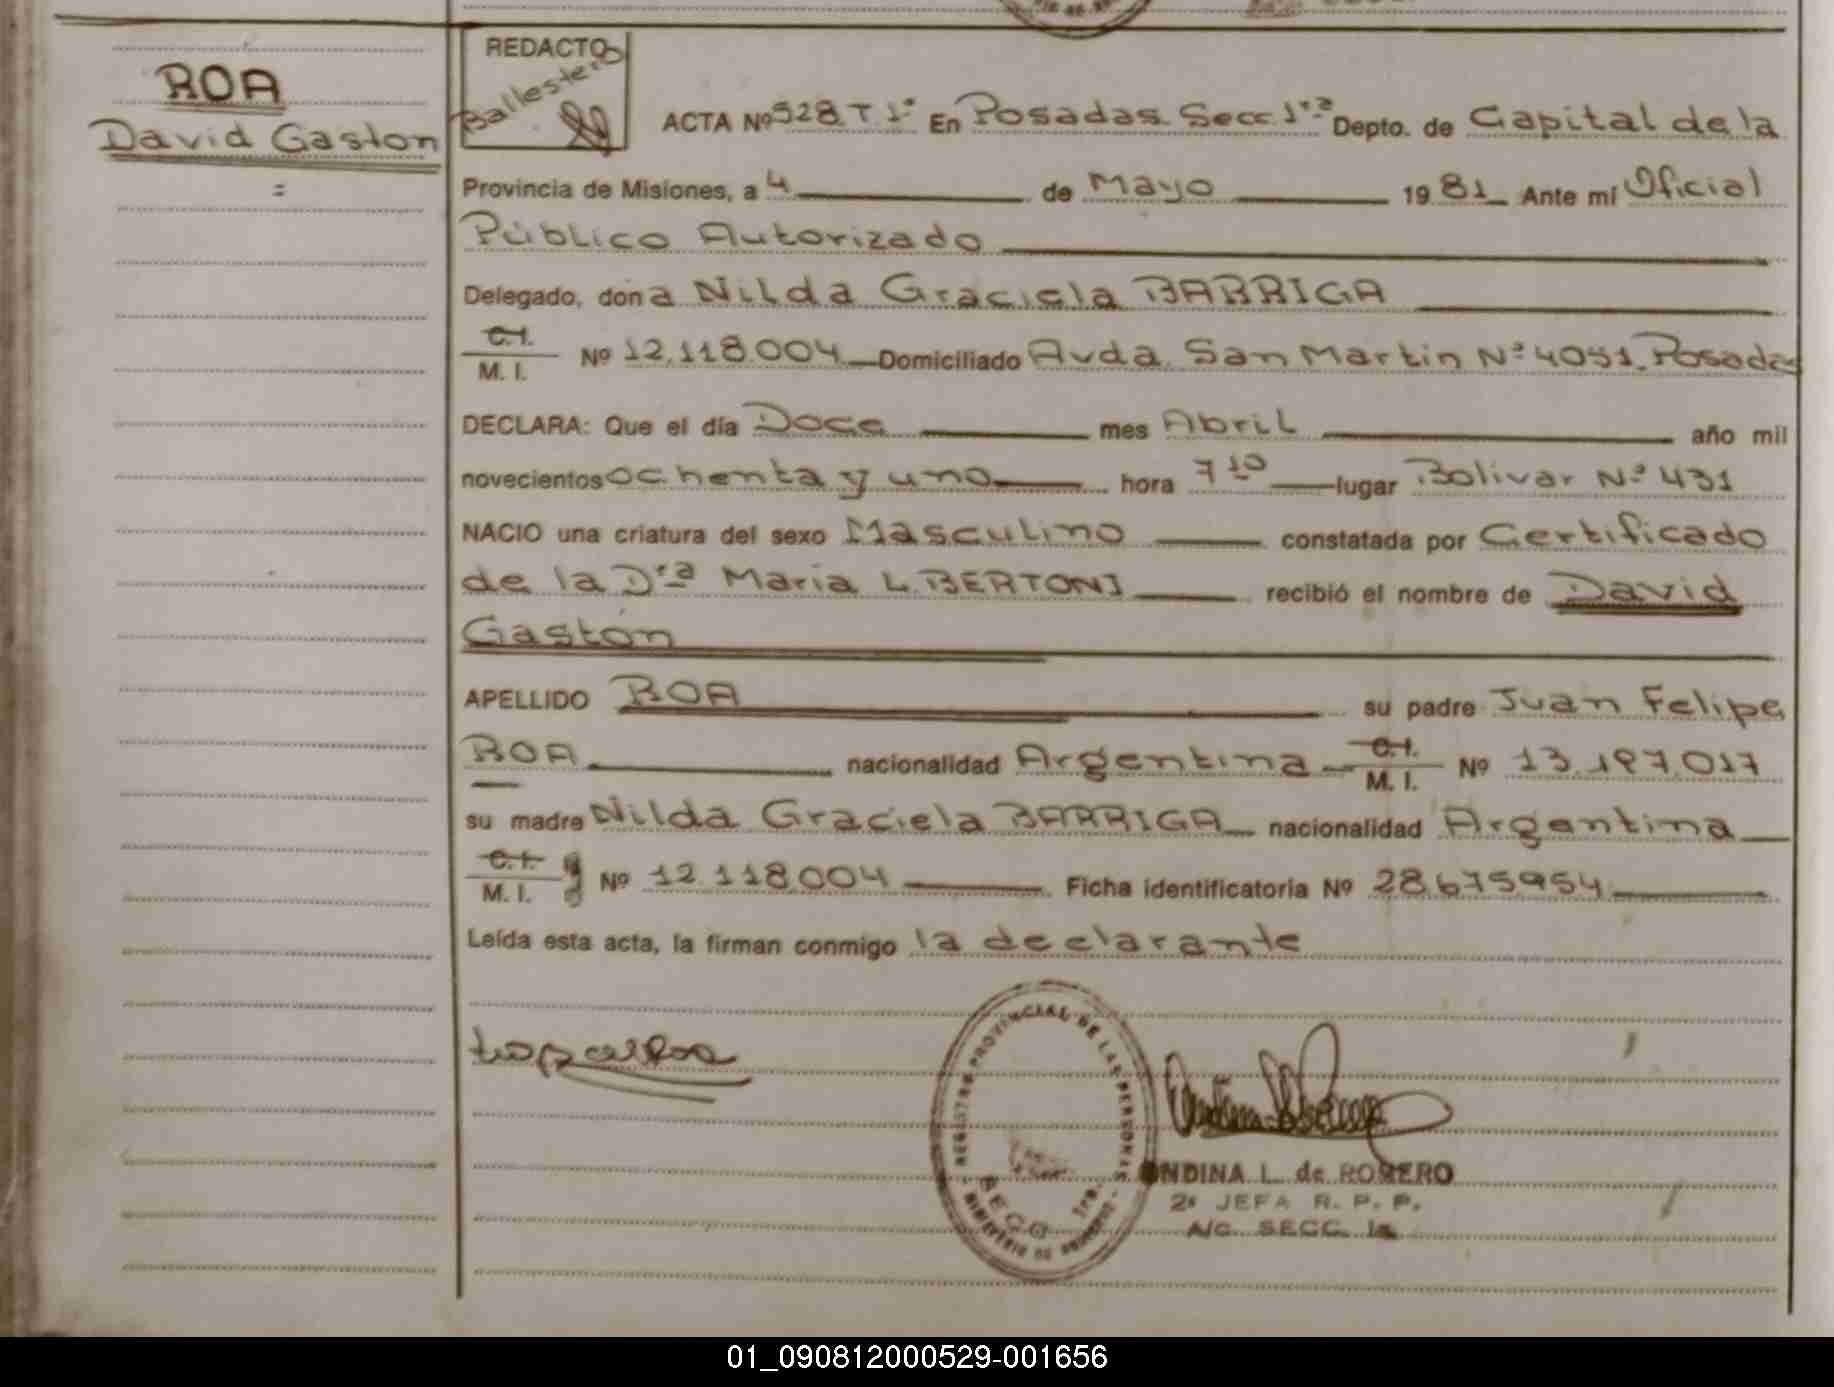 ROA
David Gaston
=
REDACTO
Ballestero
ACTA Nº 928 T 1º En Posadas Secc 1ra Depto. de Capital de la
Provincia de Misiones, a 4 de Mayo 1981 Ante mí Oficial
Público Autorizado
Delegado, dona Nilda Graciela BARRIGA
C.I.
M. I. Nº 12.118.004 Domiciliado Avda. San Martin Nº 4051. Posadas
DECLARA: Que el día Doce mes Abril año mil
novecientos ochenta y uno hora 7 10 lugar Bolivar Nº 431
NACIO una criatura del sexo Masculino constatada por Certificado
de la Dra Maria L. BERTONI recibió el nombre de David
Gastón
APELLIDO ROA su padre Juan Felipe
ROA nacionalidad Argentina C.I. M. I. Nº 13.197.017
su madre Nilda Graciela BARRIGA nacionalidad Argentina
C.I.
M. I. Nº 12.118.004 Ficha identificatoria Nº 28.675954
Leída esta acta, la firman conmigo la declarante
REGISTRO PROVINCIAL DE LAS PERSONAS
SECC 1ra.
MINISTERIO DE GOBIERNO
ONDINA L. de ROMERO
2ª JEFA R. P. P.
A/c. SECC. 1a
01_090812000529-001656